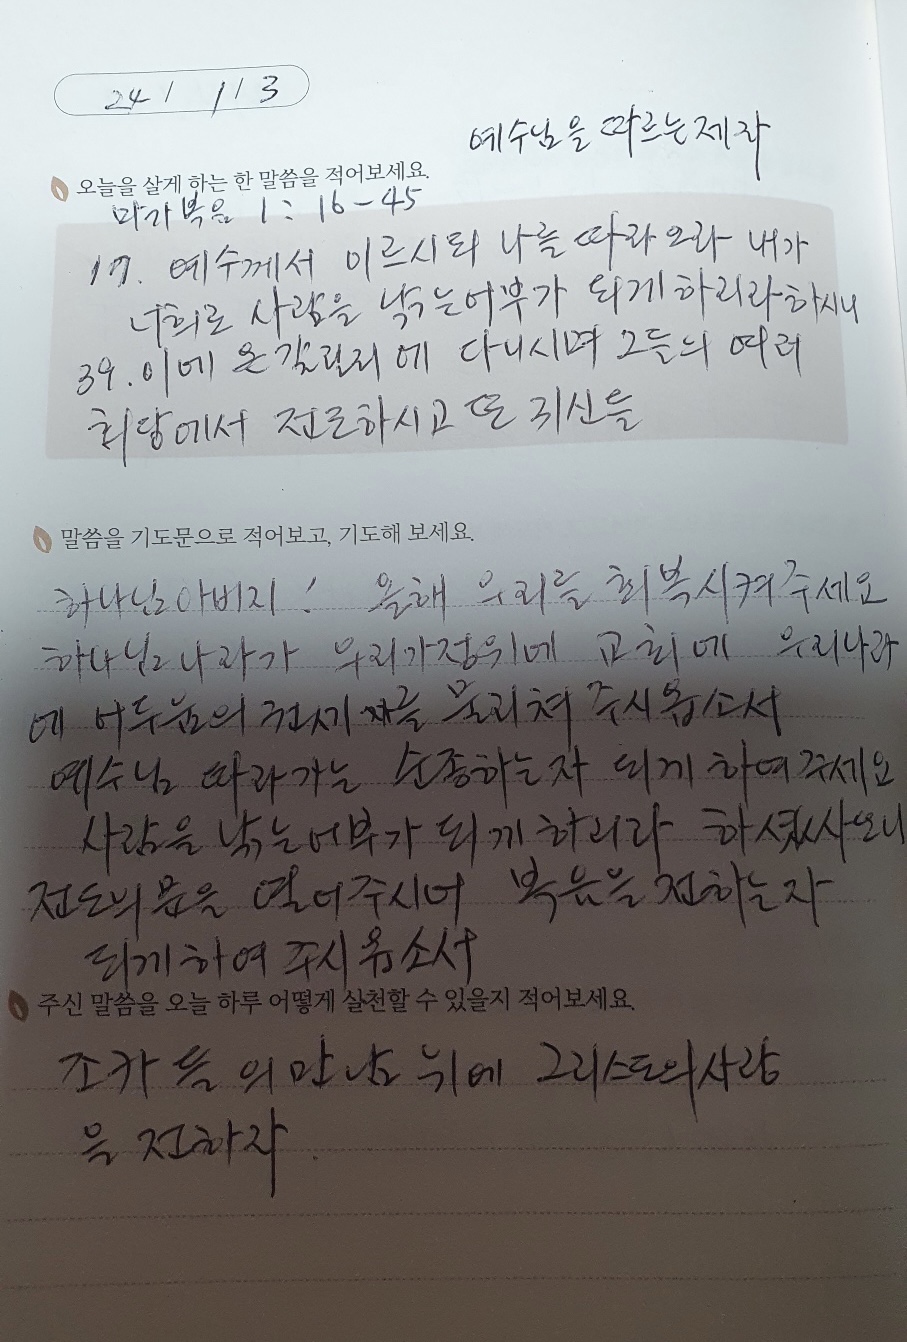 241 113
예수님을 따르는 제자
오늘을 살게 하는 한 말씀을 적어보세요.
마가복음 1:16-45
17. 예수께서 이르시되 나를 따라오라 내가
너희로 사람을 낚는 어부가 되게 하리라 하시니
39. 이에 온 갈릴리에 다니시며 그들의 여러
회당에서 전도하시고 또 귀신을
말씀을 기도문으로 적어보고, 기도해 보세요.
하나님 아버지! 올해 우리를 회복시켜 주세요
하나님 나라가 우리가정위에 교회에 우리나라
에 어두움의 권세자를 물리쳐 주시옵소서
예수님 따라가는 순종하는자 되게 하여주세요
사람을 낚는 어부가 되게 하리라 하셨사오니
전도의 문을 열어주시어 복음을 전하는자
되게하여 주시옵소서
주신 말씀을 오늘 하루 어떻게 실천할 수 있을지 적어보세요.
조카들의 만남 위에 그리스도의 사랑
을 전하자.